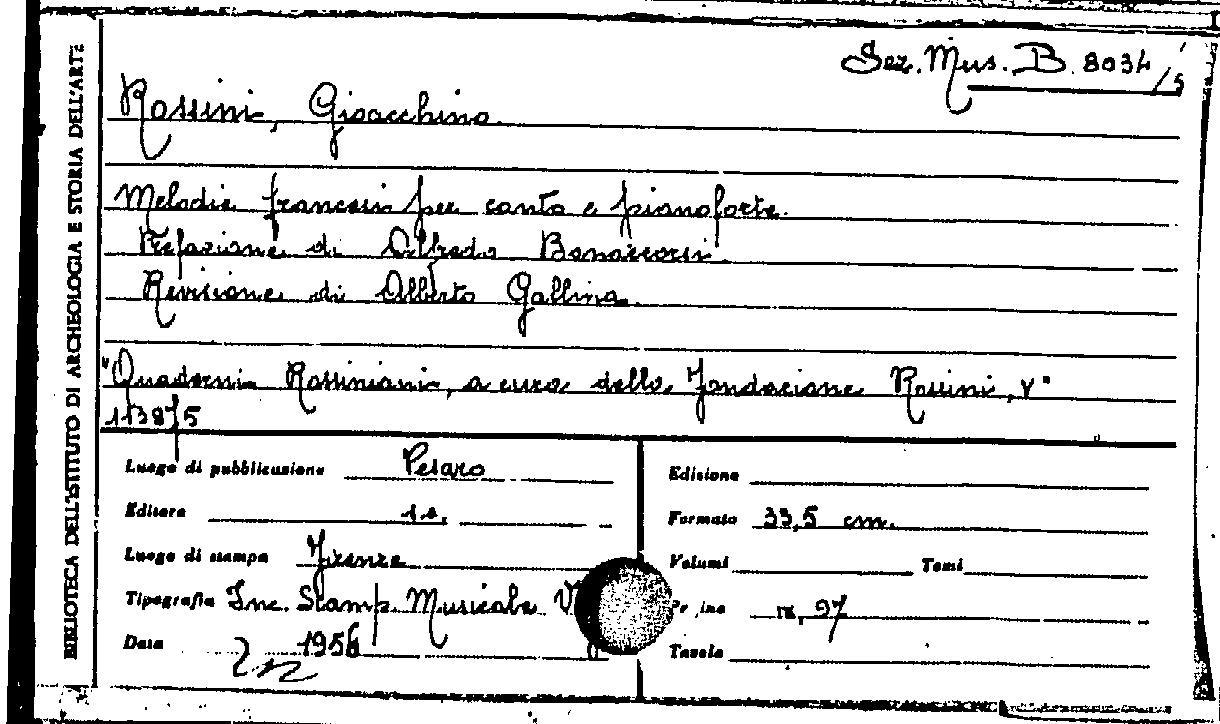 Sez. Mus. B. 8034/5
BIBLIOTECA DELL'ISTITUTO DI ARCHEOLOGIA E STORIA DELL'ARTE
Rossini, Gioacchino.
Melodie francesi per canto e pianoforte.
Prefazione di Alfredo Bonaccorsi.
Revisione di Alberto Gallina.
"Quaderni Rossiniani, a cura della Fondazione Rossini, V"
Luogo di pubblicazione Pesaro
Editore s.e.
Luogo di stampa Firenze
Tipografia Inc. Stamp. Musicale
Data 1956
Edizione
Formato 33,5 cm.
Volumi Tomi
Pagine IX, 97
Tavole